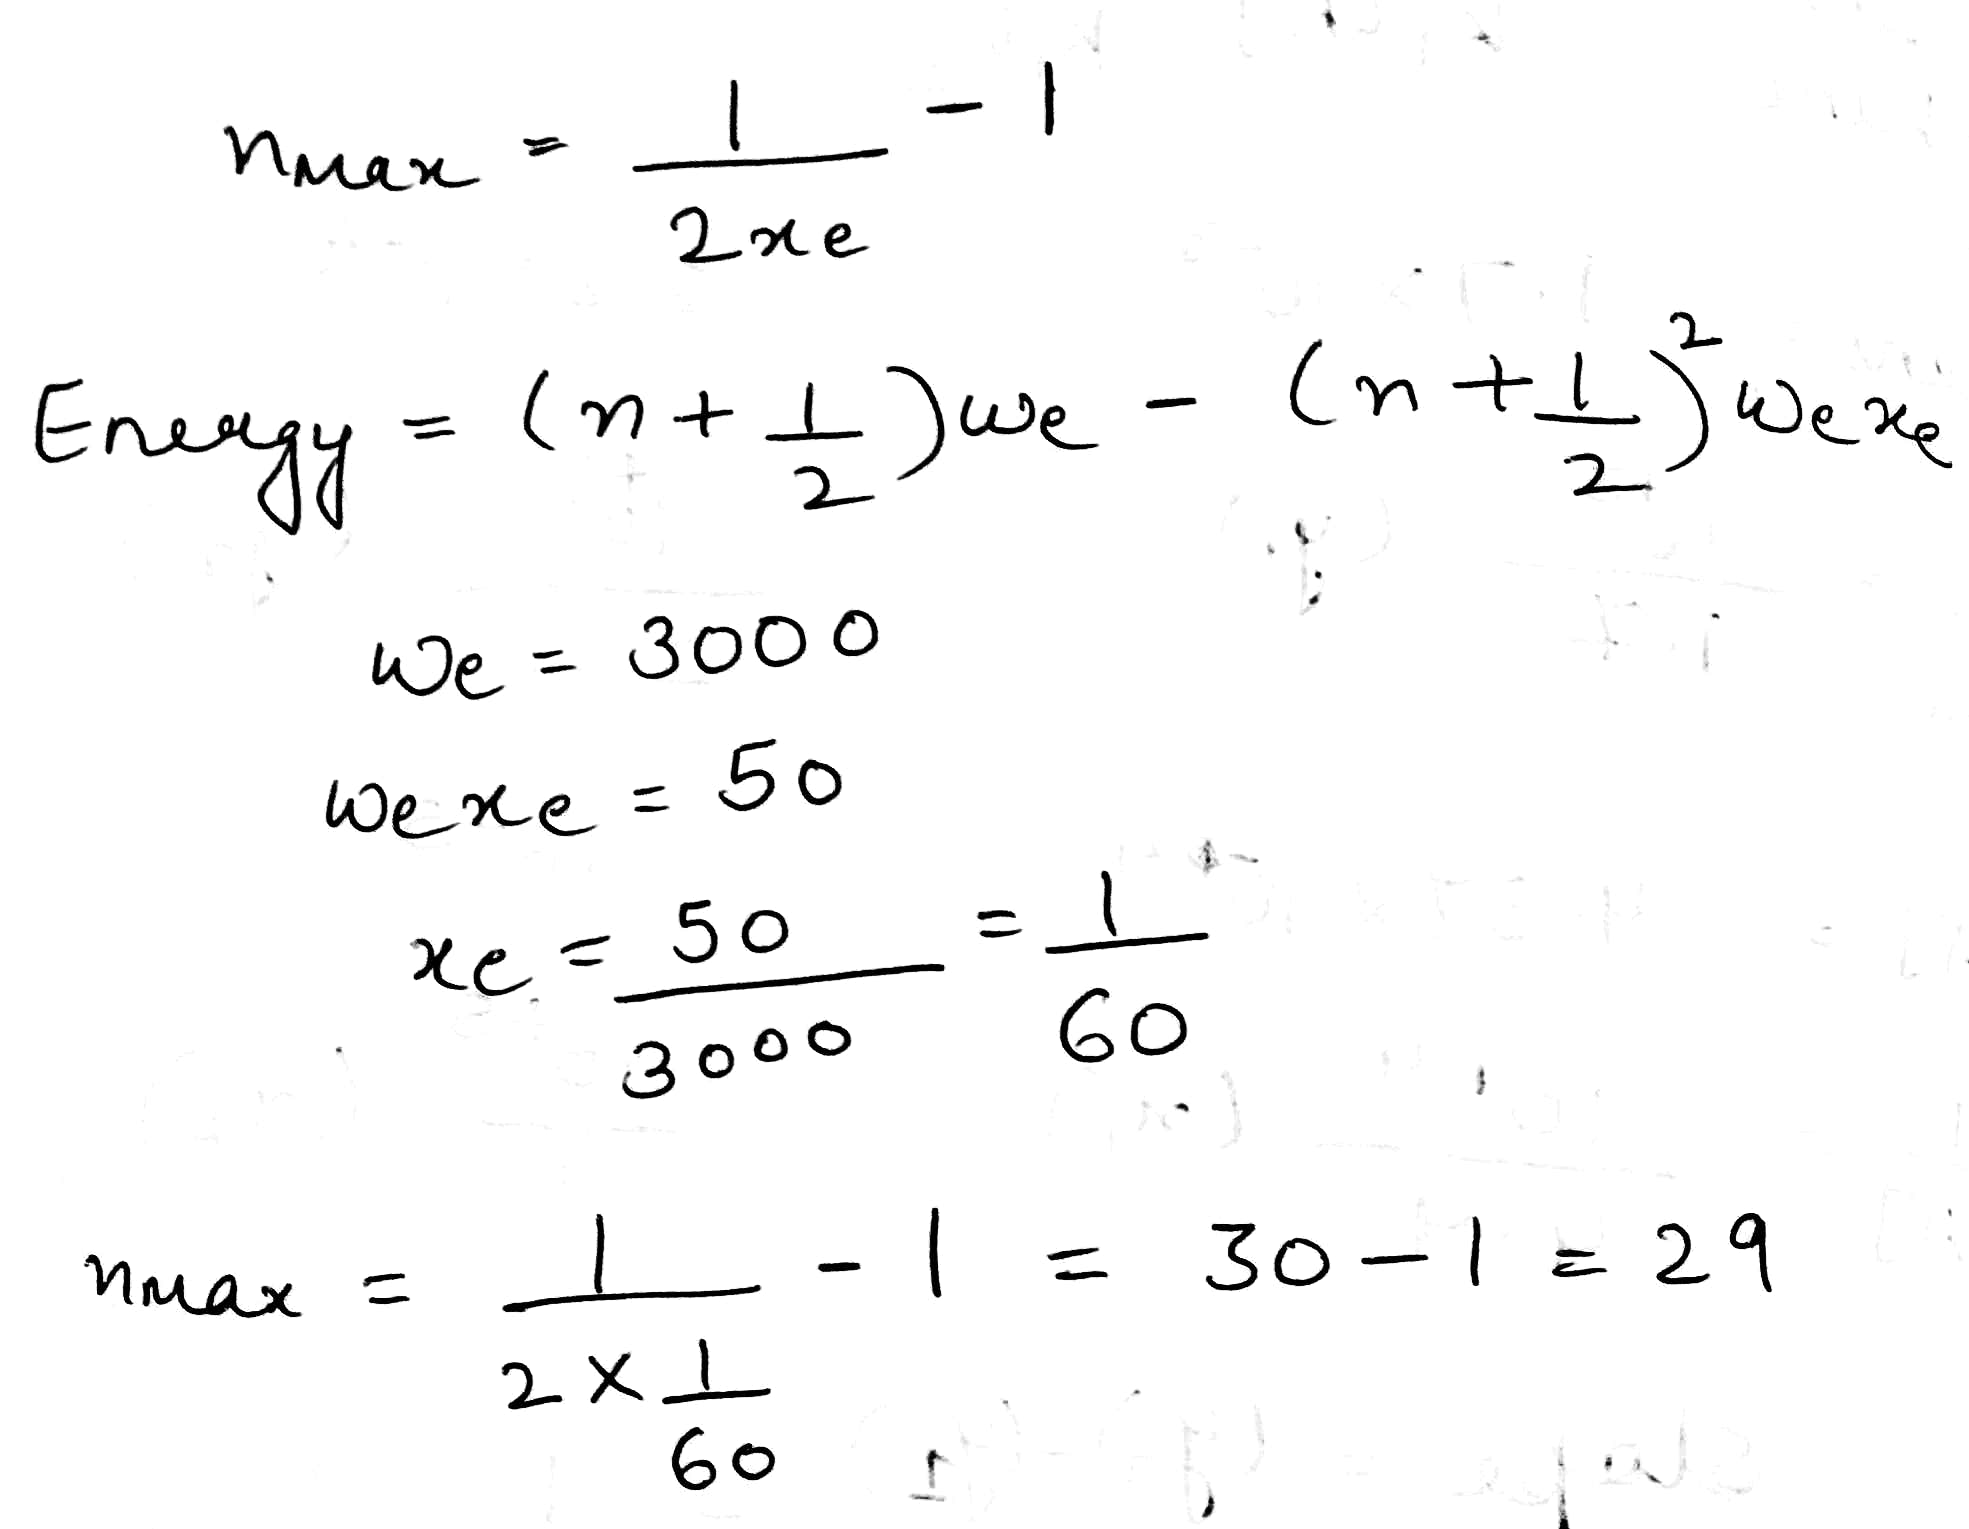 nmax = 1/2xe - 1
Energy = (n + 1/2)we - (n + 1/2)²wexe
we = 3000
wexe = 50
xe = 50/3000 = 1/60
nmax = 1/(2 × 1/60) - 1 = 30 - 1 = 29